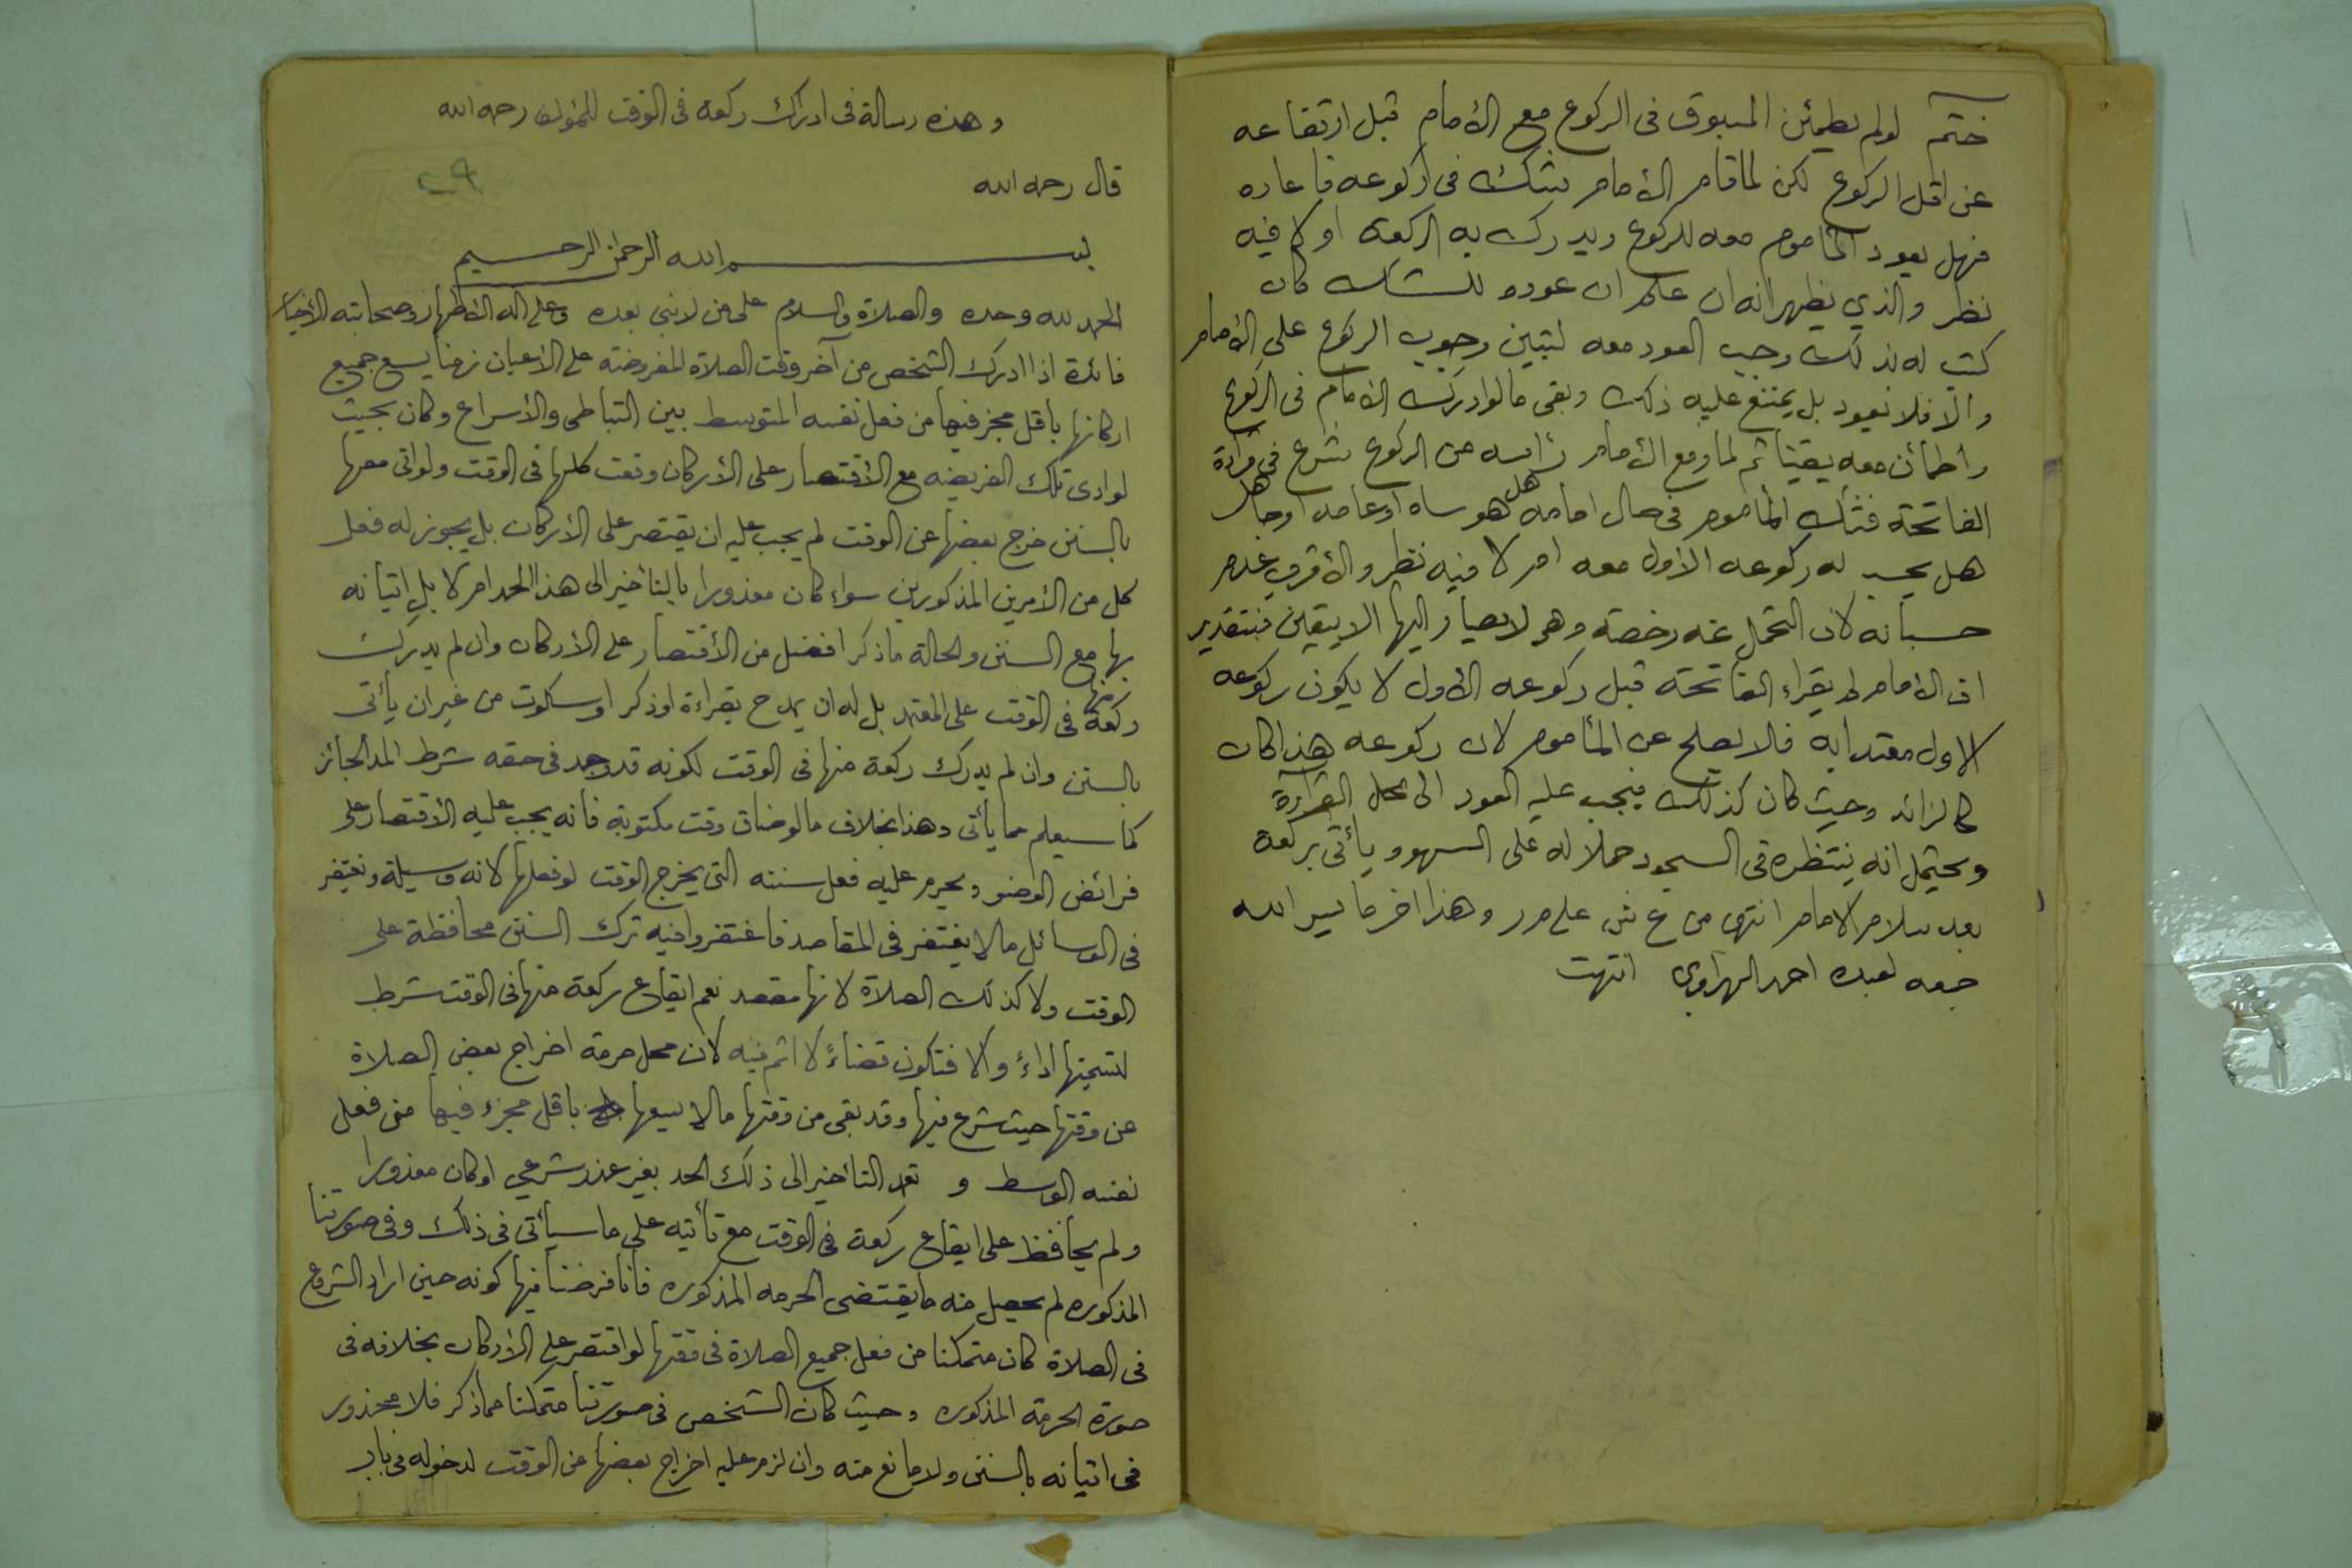 ختم لو لم يطمئن المسبوق فى الركوع مع الأمام قبل ارتفاعه
عن اقل الركوع لكن لما قام الأمام شك فى ركوعه فاعاده
فهل يعود المأموم معه للركوع ويدرك به الركعة او لا فيه
نظر والذي يظهر انه ان علم ان عوده للشك كان
كتب له لذلك وجب العود معه لتبين وجوب الركوع على الأمام
والا فلا نعود بل يمتنع عليه ذلك وبقى ما لو ادرك الامام فى الركوع
واطمأن معه يقينا ثم لما رفع الأمام رأسه من الركوع شرع فى قراءة
الفاتحة فشك المأموم فى حال امامه هل هو ساه او عامد او جاهل
هل يحسب له ركوعه الاول معه ام لا فيه نظر والأقرب عدم
حسبانه لان التحمل عنه رخصة وهو لا يصار اليها الا بيقين فبتقدير
ان الأمام لم يقراء الفاتحة قبل ركوعه الأول لا يكون ركوعه
الاول معتدا به فلا يصلح عن المأموم لان ركوعه هذا كان
كالزائد وحيث كان كذلك فيجب عليه العود الى محل القراءة
ويحتمل انه ينتظره فى السجود حملا له على السهو ويأتى بركعة
بعد سلام الامام انتهى من ع ش على م ر وهذا اخر ما يسر الله
جمعه لعبده احمد السهراوي انتهت
وهذه رسالة فى ادراك ركعة فى الوقت للمؤلف رحمه الله
قال رحمه الله
٢٩
بسم الله الرحمن الرحيم
الحمد لله وحده والصلاة والسلام على من لا نبى بعده وعلى اله الأطهار وصحابته الأخيار
فائدة اذا ادرك الشخص من آخر وقت الصلاة المفروضة على الأعيان زمنا يسع جميع
اركانها باقل مجز فيها من فعل نفسه المتوسط بين التباطى والأسراع وكان بحيث
لو ادى تلك الفريضه مع الأقتصار على الأركان وقعت كلها فى الوقت ولو اتى معها
بالسنن خرج بعضها عن الوقت لم يجب عليه ان يقتصر على الأركان بل يجوز له فعل
كل من الأمرين المذكورين سواء كان معذورا بالتأخير الى هذا الحد ام لا بل اتيانه
بها مع السنن والحالة ما ذكر افضل من الأقتصار على الأركان وان لم يدرك
ركعة منها فى الوقت على المعتمد بل له ان يمدح بقراءة او ذكر او سكوت من غير ان يأتى
بالسنن وان لم يدرك ركعة منها فى الوقت لكونه قد وجد فى حقه شرط المد الجائز
كما سيعلم مما يأتى وهذا بخلاف ما لو ضاق وقت مكتوبة فانه يجب عليه الأقتصار على
فرائض الوضو ويحرم عليه فعل سننه التى يخرج الوقت لو فعلها لانه وسيلة ونغتفر
فى الوسائل ما لا يغتفر فى المقاصد فاغتفروا فيه ترك السنن محافظة على
الوقت ولا كذلك الصلاة لانها مقصد نعم ايقاع ركعة منها فى الوقت شرط
لتسميتها اداءً والا فتكون قضاءً لا اثم فيه لان محل حرمة اخراج بعض الصلاة
عن وقتها حيث شرع فيها وقد بقى من وقتها ما لا يسعها باقل مجزء فيها من فعل
نفسه الوسط و تعد التأخير الى ذلك الحد بغير عذر شرعي او كان معذورا
ولم يحافظ على ايقاع ركعة فى الوقت مع تأتيه على ما سيأتى فى ذلك وفى صورتنا
المذكوره لم يحصل منه ما يقتضى الحرمه المذكوره فانا فرضنا فيها كونه حين اراد الشروع
فى الصلاة كان متمكنا من فعل جميع الصلاة فى وقتها لو اقتصر على الأركان بخلافه فى
صورة الحرمة المذكوره وحيث كان الشخص فى صورتنا متمكنا مما ذكر فلا محذور
فى اتيانه بالسنن ولا مانع منه وان لزم عليه اخراج بعضها عن الوقت لدخوله فى باب